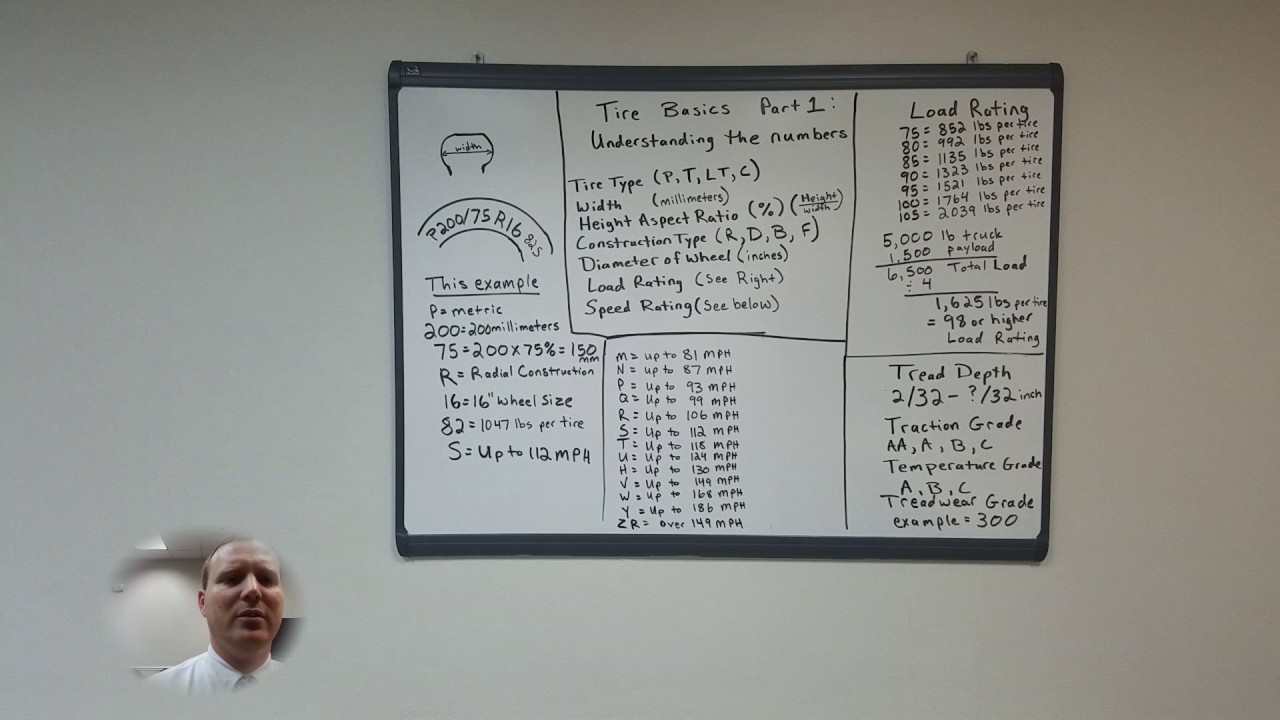 width
P200/75 R16 82S
This example
P= metric
200=200millimeters
75=200x75%=150
mm
R= Radial Construction
16=16" Wheel Size
82=1047 lbs per tire
S=Up to 112 MPH
Tire Basics Part 1:
Understanding the numbers
Tire Type (P, T, LT, C)
Width (millimeters)
Height Aspect Ratio (%) (Height/width)
Construction Type (R, D, B, F)
Diameter of Wheel (inches)
Load Rating (See Right)
Speed Rating (See below)
M= up to 81 MPH
N= up to 87 MPH
P= Up to 93 MPH
Q= Up to 99 MPH
R= Up to 106 MPH
S= Up to 112 MPH
T= Up to 118 MPH
U= Up to 124 MPH
H= Up to 130 MPH
V= Up to 149 MPH
W= Up to 168 MPH
Y= Up to 186 MPH
ZR= over 149 MPH
Load Rating
75= 852 lbs per tire
80= 992 lbs per tire
85= 1135 lbs per tire
90= 1323 lbs per tire
95= 1521 lbs per tire
100= 1764 lbs per tire
105= 2039 lbs per tire
5,000 lb truck
1,500 payload
6,500 Total Load
÷ 4
1,625 lbs per tire
= 98 or higher
Load Rating
Tread Depth
2/32 - ?/32 inch
Traction Grade
AA, A, B, C
Temperature Grade
A, B, C
Treadwear Grade
example= 300